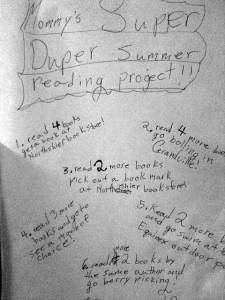 Mommy's Super
Duper Summer
reading project!!
1. read 4 books
get a book at
Northshier bookstore!
2. read 4 more
go bowling in
3. read 2 more books
pick out a book mark
at Northshier bookstore!
4. read 3 more
books and go to
see a movie of
choice!
5. Read 2 more
and go swim at
Equinox outdoor
6. read 2 more books by
the same author and
go berry picking!